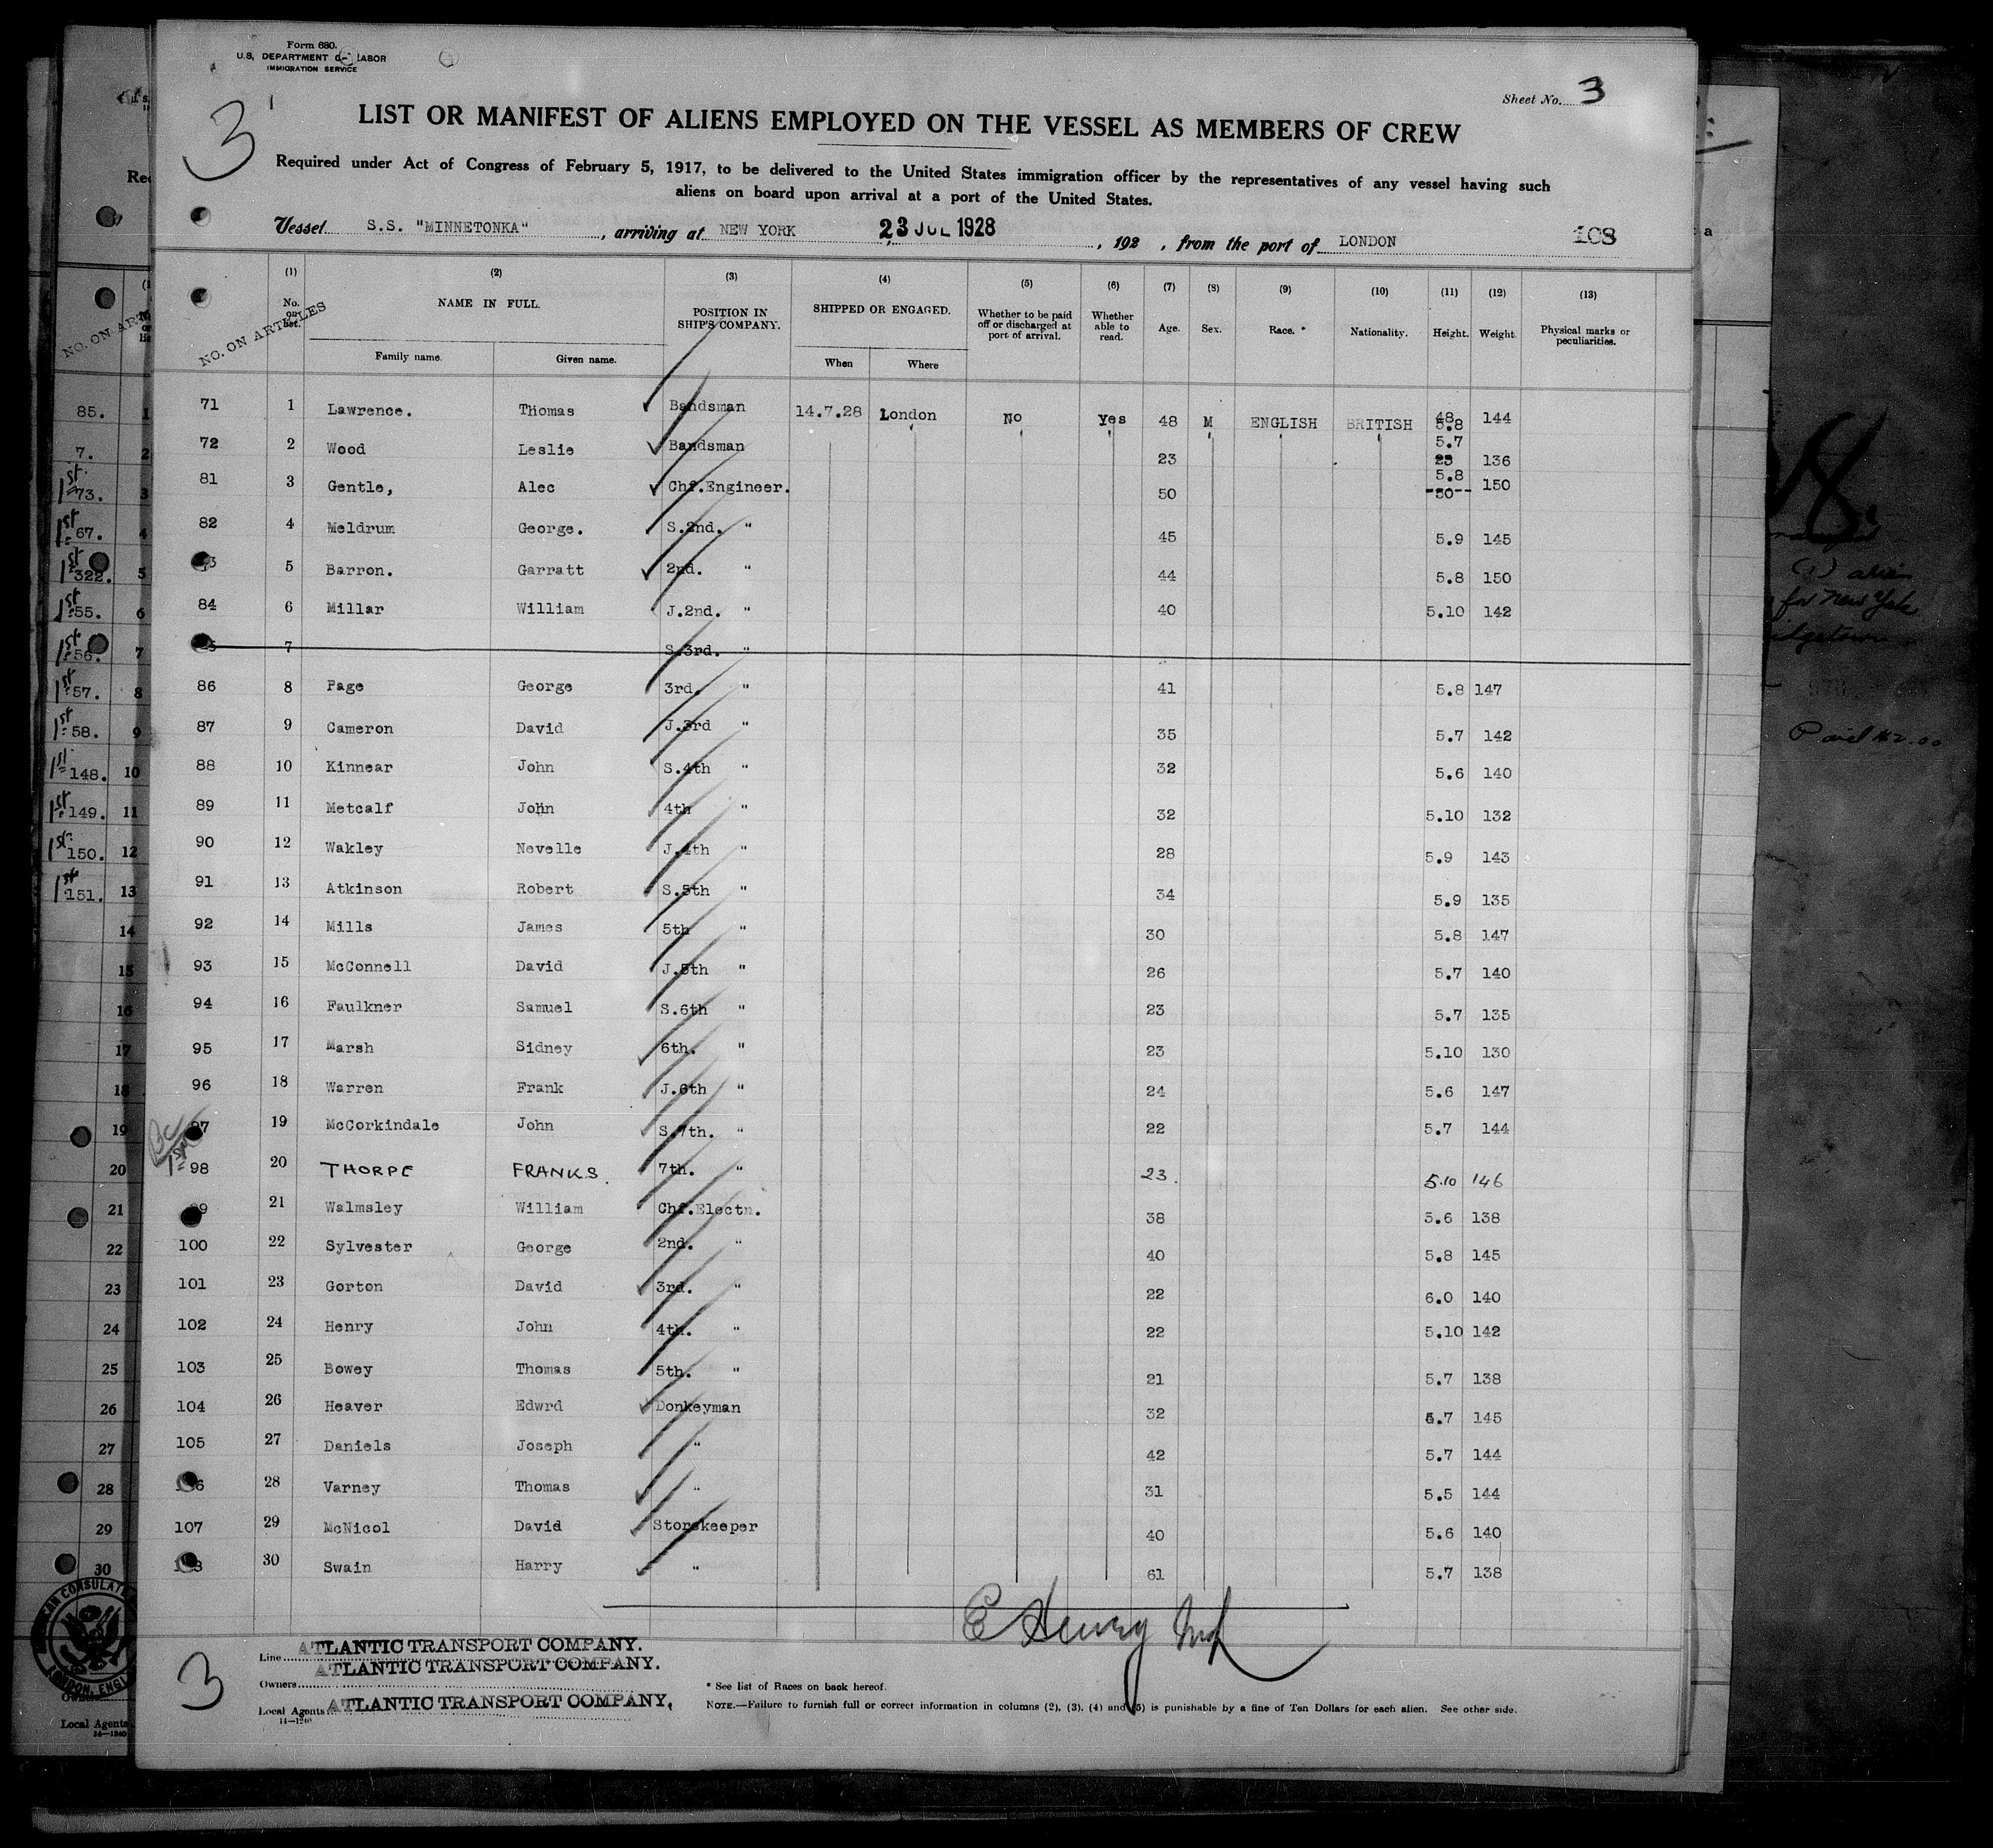 Form 680.
U.S. DEPARTMENT OF LABOR
IMMIGRATION SERVICE
3
Sheet No. 3
LIST OR MANIFEST OF ALIENS EMPLOYED ON THE VESSEL AS MEMBERS OF CREW
Required under Act of Congress of February 5, 1917, to be delivered to the United States immigration officer by the representatives of any vessel having such
aliens on board upon arrival at a port of the United States.
Vessel S.S. "MINNETONKA", arriving at NEW YORK 23 JUL 1928, 192 , from the port of LONDON 108
(1) (2) (3) (4) (5) (6) (7) (8) (9) (10) (11) (12) (13)
NO. ON ARTICLES No. on list. NAME IN FULL. POSITION IN SHIP'S COMPANY. SHIPPED OR ENGAGED. Whether to be paid off or discharged at port of arrival. Whether able to read. Age. Sex. Race.* Nationality. Height. Weight. Physical marks or peculiarities.
Family name. Given name. When Where
71 1 Lawrence. Thomas Bandsman 14.7.28 London No Yes 48 M ENGLISH BRITISH 48 5.8 144
72 2 Wood Leslie Bandsman 23 5.7 23 136
81 3 Gentle, Alec Chf.Engineer. 50 5.8 50 150
82 4 Meldrum George. S.2nd. " 45 5.9 145
5 Barron. Garratt 2nd. " 44 5.8 150
84 6 Millar William J.2nd. " 40 5.10 142
7 S.3rd. "
86 8 Page George 3rd. " 41 5.8 147
87 9 Cameron David J.3rd " 35 5.7 142
88 10 Kinnear John S.4th " 32 5.6 140
89 11 Metcalf John 4th " 32 5.10 132
90 12 Wakley Nevelle J.4th " 28 5.9 143
91 13 Atkinson Robert S.5th " 34 5.9 135
92 14 Mills James 5th " 30 5.8 147
93 15 McConnell David J.5th " 26 5.7 140
94 16 Faulkner Samuel S.6th " 23 5.7 135
95 17 Marsh Sidney 6th. " 23 5.10 130
96 18 Warren Frank J.6th " 24 5.6 147
97 19 McCorkindale John S.7th. " 22 5.7 144
98 20 THORPE FRANKS. 7th. " 23. 5.10 146
21 Walmsley William Chf.Electn. 38 5.6 138
100 22 Sylvester George 2nd. " 40 5.8 145
101 23 Gorton David 3rd. " 22 6.0 140
102 24 Henry John 4th. " 22 5.10 142
103 25 Bowey Thomas 5th. " 21 5.7 138
104 26 Heaver Edwrd Donkeyman 32 5.7 145
105 27 Daniels Joseph " 42 5.7 144
28 Varney Thomas " 31 5.5 144
107 29 McNicol David Storekeeper 40 5.6 140
30 Swain Harry " 61 5.7 138
E Henry
3
Line ATLANTIC TRANSPORT COMPANY.
Owners ATLANTIC TRANSPORT COMPANY.
Local Agents ATLANTIC TRANSPORT COMPANY,
14—1240
* See list of Races on back hereof.
NOTE.—Failure to furnish full or correct information in columns (2), (3), (4) and (5) is punishable by a fine of Ten Dollars for each alien. See other side.
NO. ON ART
85. 1
7. 2
1st 73. 3
1st 67. 4
1st 322. 5
1st 55. 6
1st 56. 7
1st 57. 8
1st 58. 9
1st 148. 10
1st 149. 11
1st 150. 12
1st 151. 13
14
15
16
17
18
19
20
21
22
23
24
25
26
27
28
29
30
Local Agents
14—1240
(1) alien
for New York